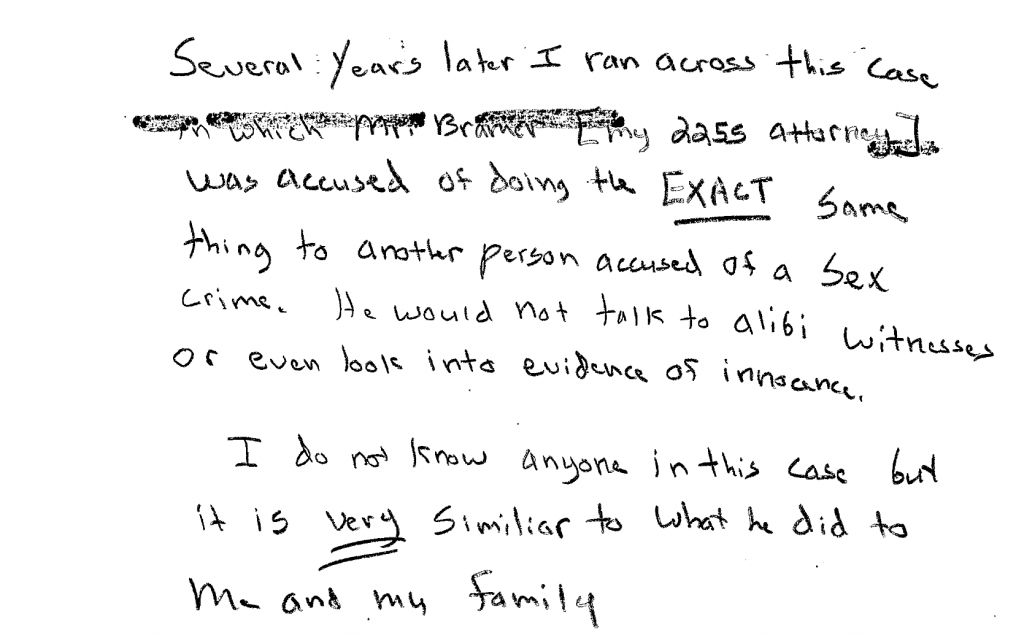 Several Years later I ran across this case
in which Mr. Bramer [my 2255 attorney].
was accused of doing the EXACT same
thing to another person accused of a sex
crime. He would not talk to alibi witnesses
or even look into evidence of innocence.
I do not know anyone in this case but
it is very similiar to what he did to
me and my family